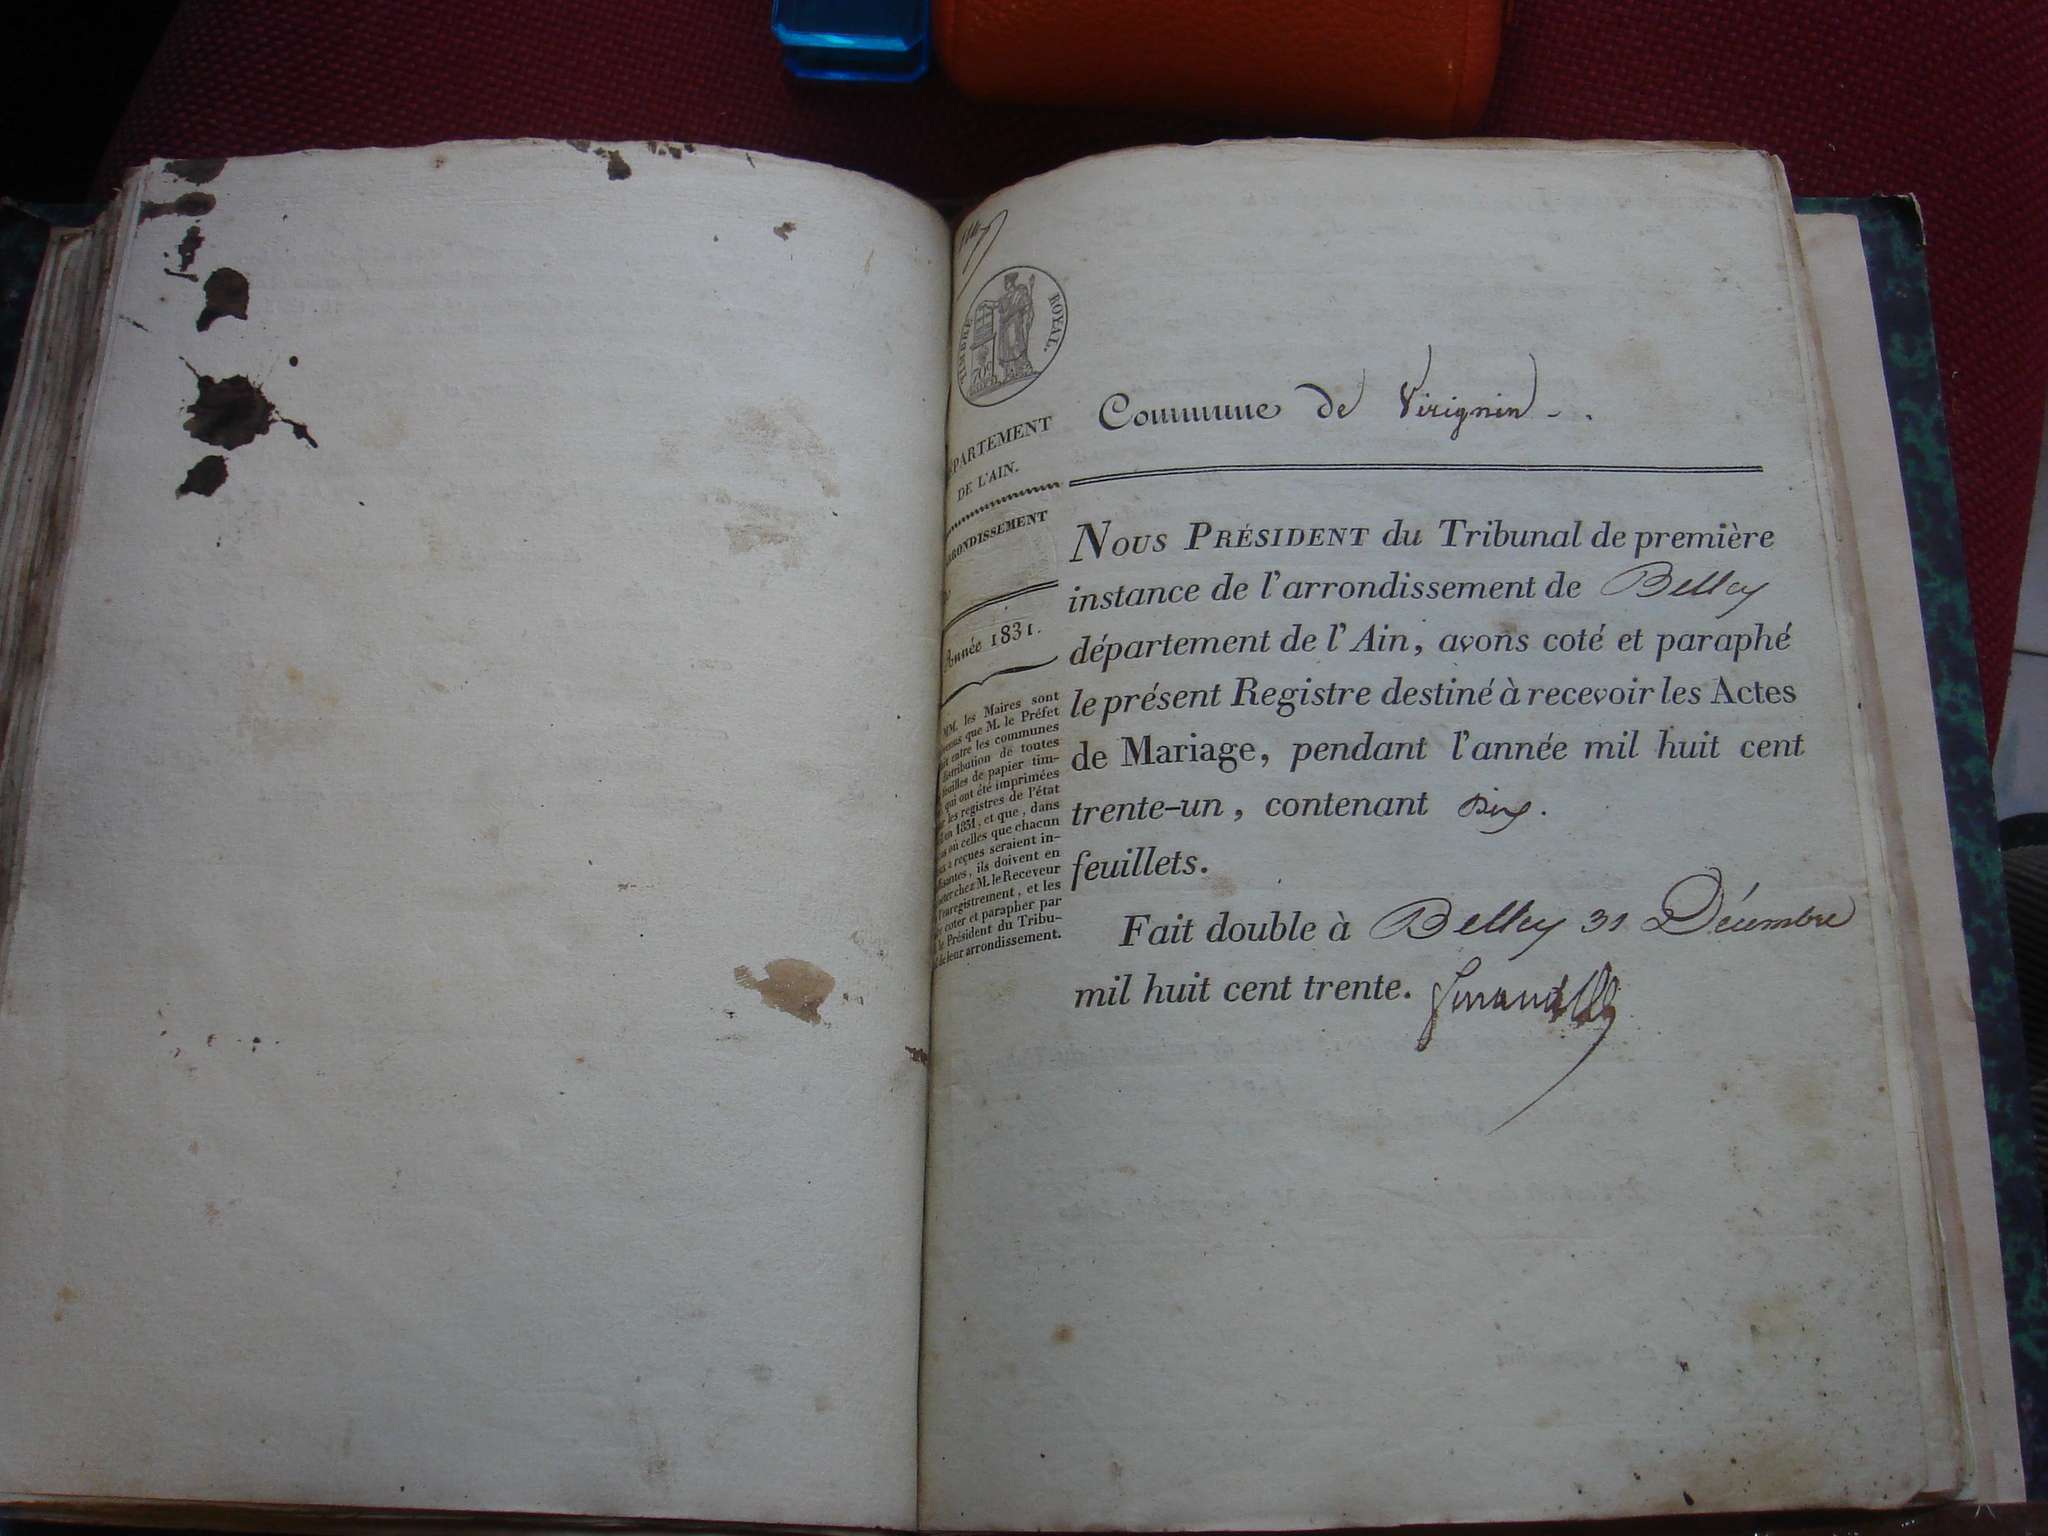 TIMBRE ROYAL.
PARTEMENT
DE L'AIN.
RONDISSEMENT
Année 1831.
MM. les Maires sont
que M. le Préfet
entre les communes
distribution de toutes
feuilles de papier tim-
qui ont été imprimées
les registres de l'état
en 1831, et que, dans
où celles que chacun
a reçues seraient in-
, ils doivent en
chez M. le Receveur
l'enregistrement, et les
coter et parapher par
le Président du Tribu-
de leur arrondissement.
Commune de Virignin
NOUS PRÉSIDENT du Tribunal de première
instance de l'arrondissement de Belley
département de l'Ain, avons coté et paraphé
le présent Registre destiné à recevoir les Actes
de Mariage, pendant l'année mil huit cent
trente-un, contenant six.
feuillets.
Fait double à Belley 31 Décembre
mil huit cent trente.